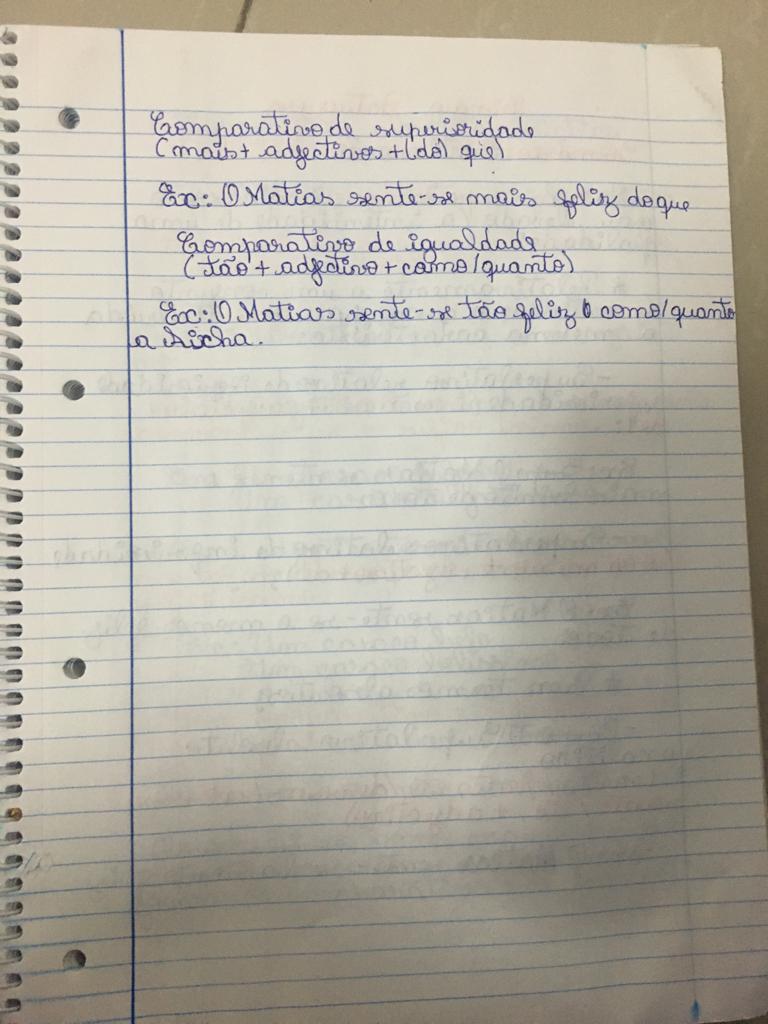 Comparativo de superioridade
(mais + adjectivos + (do) que)
Ex: O Matias sente-se mais feliz do que
Comparativo de igualdade
(tão + adjectivo + como/quanto)
Ex: O Matias sente-se tão feliz como/quanto
a Aixha.